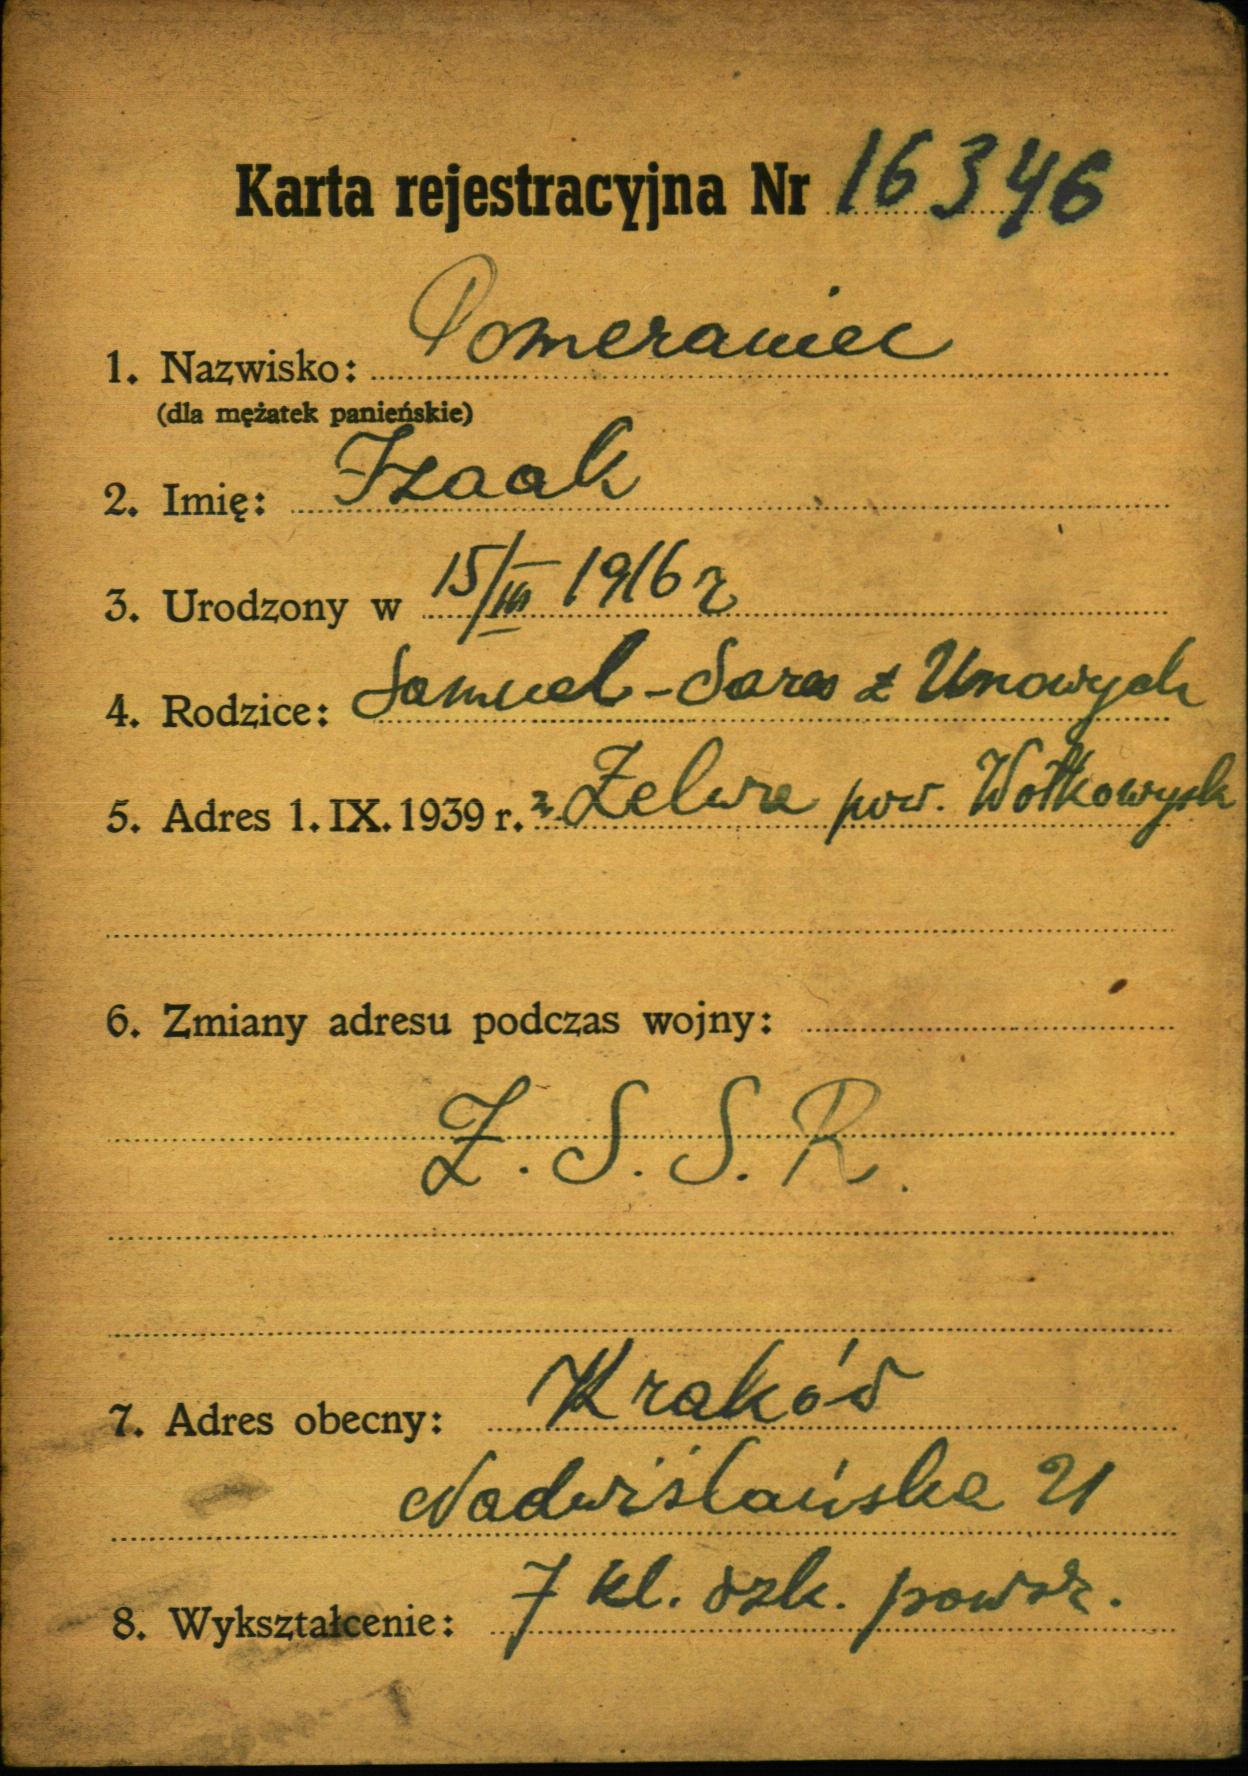 Karta rejestracyjna Nr 16346
1. Nazwisko: Pomeraniec
(dla mężatek panieńskie)
2. Imię: Izaak
3. Urodzony w 15/III 1916 r
4. Rodzice: Samuel - Sara z Unowych
5. Adres 1. IX. 1939 r. Zelwa pow. Wołkowysk
6. Zmiany adresu podczas wojny:
Z. S. S. R.
7. Adres obecny: Kraków
Nadwiślańska 21
8. Wykształcenie: 7 kl. szk. powsz.